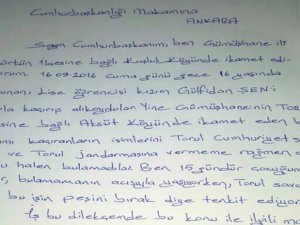 Cumhurbaşkanlığı Makamına
ANKARA
Sayın Cumhurbaşkanım, ben Gümüşhane ili
Kürtün İlçesine bağlı Kuşluk Köyünde ikamet edi
oram. 16.09.2016 Cuma günü gece 16 yaşında
unan, lise öğrencisi kızım Gülfidan ŞEN'i
rla kaçırıp alıkoydular Yine Gümüşhane'nin TOR
esine bağlı Aksüt Köyünde ikamet eden b
mı kaçıranların isimlerini Torul Cumhuriyet s
ve Torul jandarmasına vermeme rağmen
halen bulamadılar. Ben 15 gündür çocuğum
r, bulamamanın acısıyla yaşıyorken, Torul savc
bu işin peşini bırak diye tenkit ediyor
İş bu dilekçemde bu konu ile ilgili m